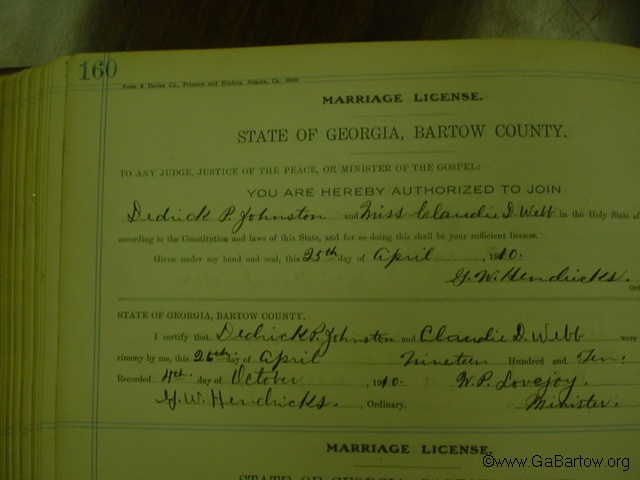 160
Foote & Davies Co., Printers and Binders, Atlanta, Ga.
MARRIAGE LICENSE.
STATE OF GEORGIA, BARTOW COUNTY.
TO ANY JUDGE, JUSTICE OF THE PEACE, OR MINISTER OF THE GOSPEL:
YOU ARE HEREBY AUTHORIZED TO JOIN
Dedrick P. Johnston and Miss Claudie D. Webb in the Holy State of
according to the Constitution and laws of this State, and for so doing this shall be your sufficient license.
Given under my hand and seal, this 25th day of April, 1910.
G. W. Hendricks.
Ord
STATE OF GEORGIA, BARTOW COUNTY.
I certify that Dedrick P. Johnston and Claudie D. Webb were
rimony by me, this 26th day of April Nineteen Hundred and Ten.
Recorded 4th day of October, 1910. W. P. Lovejoy.
G. W. Hendricks, Ordinary. Minister.
MARRIAGE LICENSE.
STATE OF GEORGIA, BARTOW COUNTY.
©www.GaBartow.org